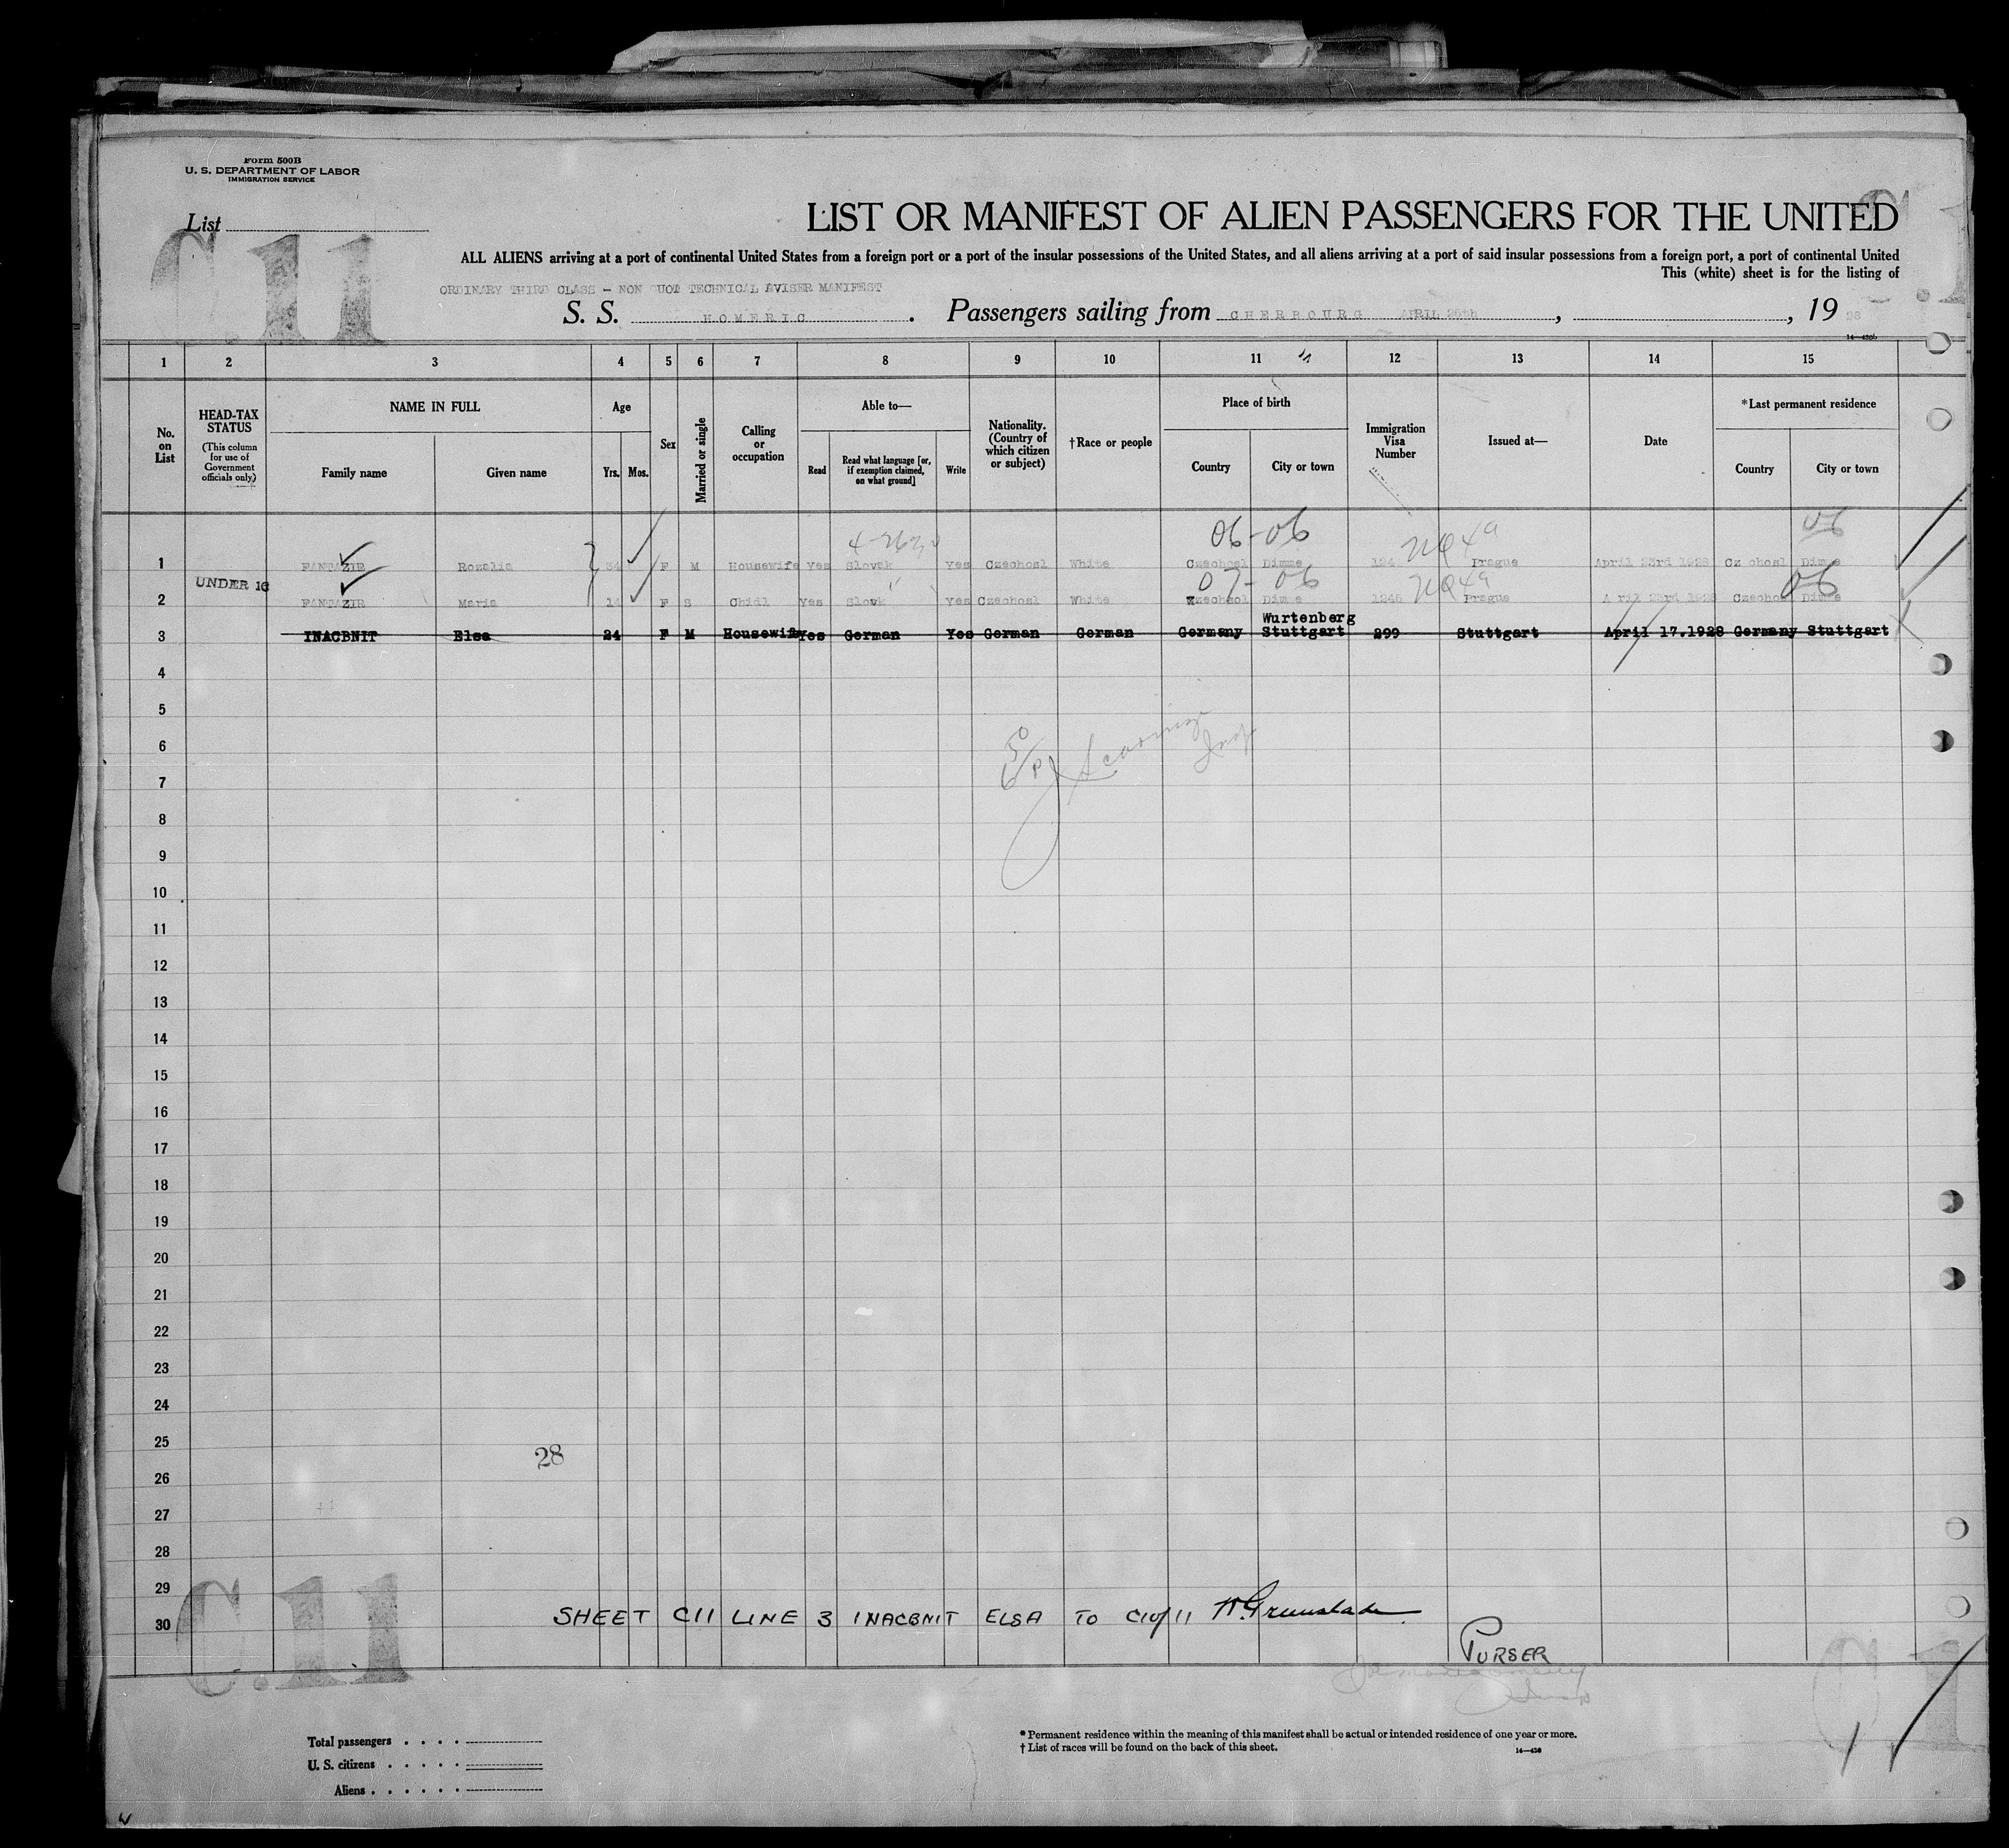 Form 500B
U. S. DEPARTMENT OF LABOR
IMMIGRATION SERVICE
List
C.11
LIST OR MANIFEST OF ALIEN PASSENGERS FOR THE UNITED
ALL ALIENS arriving at a port of continental United States from a foreign port or a port of the insular possessions of the United States, and all aliens arriving at a port of said insular possessions from a foreign port, a port of continental United
This (white) sheet is for the listing of
ORDINARY THIRD CLASS - NON QUOT TECHNICAL AVISER MANIFEST
S. S. HOMERIC . Passengers sailing from CHERBOURG APRIL 25th , , 19 28
1 2 3 4 5 6 7 8 9 10 11 12 13 14 15
No. on List
HEAD-TAX STATUS
(This column for use of Government officials only)
NAME IN FULL
Family name Given name
Age
Yrs. Mos.
Sex
Married or single
Calling or occupation
Able to—
Read
Read what language [or, if exemption claimed, on what ground]
Write
Nationality. (Country of which citizen or subject)
†Race or people
Place of birth
Country City or town
Immigration Visa Number
Issued at—
Date
*Last permanent residence
Country City or town
06-06 06
1 FANTAZIR Rozalia 34 F M Housewife Yes Slovak Yes Czechosl White Czechosl Dimme 124 Prague April 23rd 1928 Cz chosl Dimme
07-06 06
2 UNDER 16 FANTAZIR Maria 14 F S Chidl Yes Slovk Yes Czechosl White Czechosl Dimme 1245 Prague A ril 23rd 1928 Czechos Dimme
Wurtenberg
3 INACBNIT Elsa 24 F M Housewife Yes German Yes German German Germany Stuttgart 299 Stuttgart April 17.1928 Germany Stuttgart
4
5
6
7
8
9
10
11
12
13
14
15
16
17
18
19
20
21
22
23
24
25
28
26
27
28
29
30 SHEET C11 LINE 3 INACBNIT ELSA TO C10/11
PURSER
C.11
Total passengers . . . .
U. S. citizens . . . . .
Aliens . . . . . .
* Permanent residence within the meaning of this manifest shall be actual or intended residence of one year or more.
† List of races will be found on the back of this sheet.